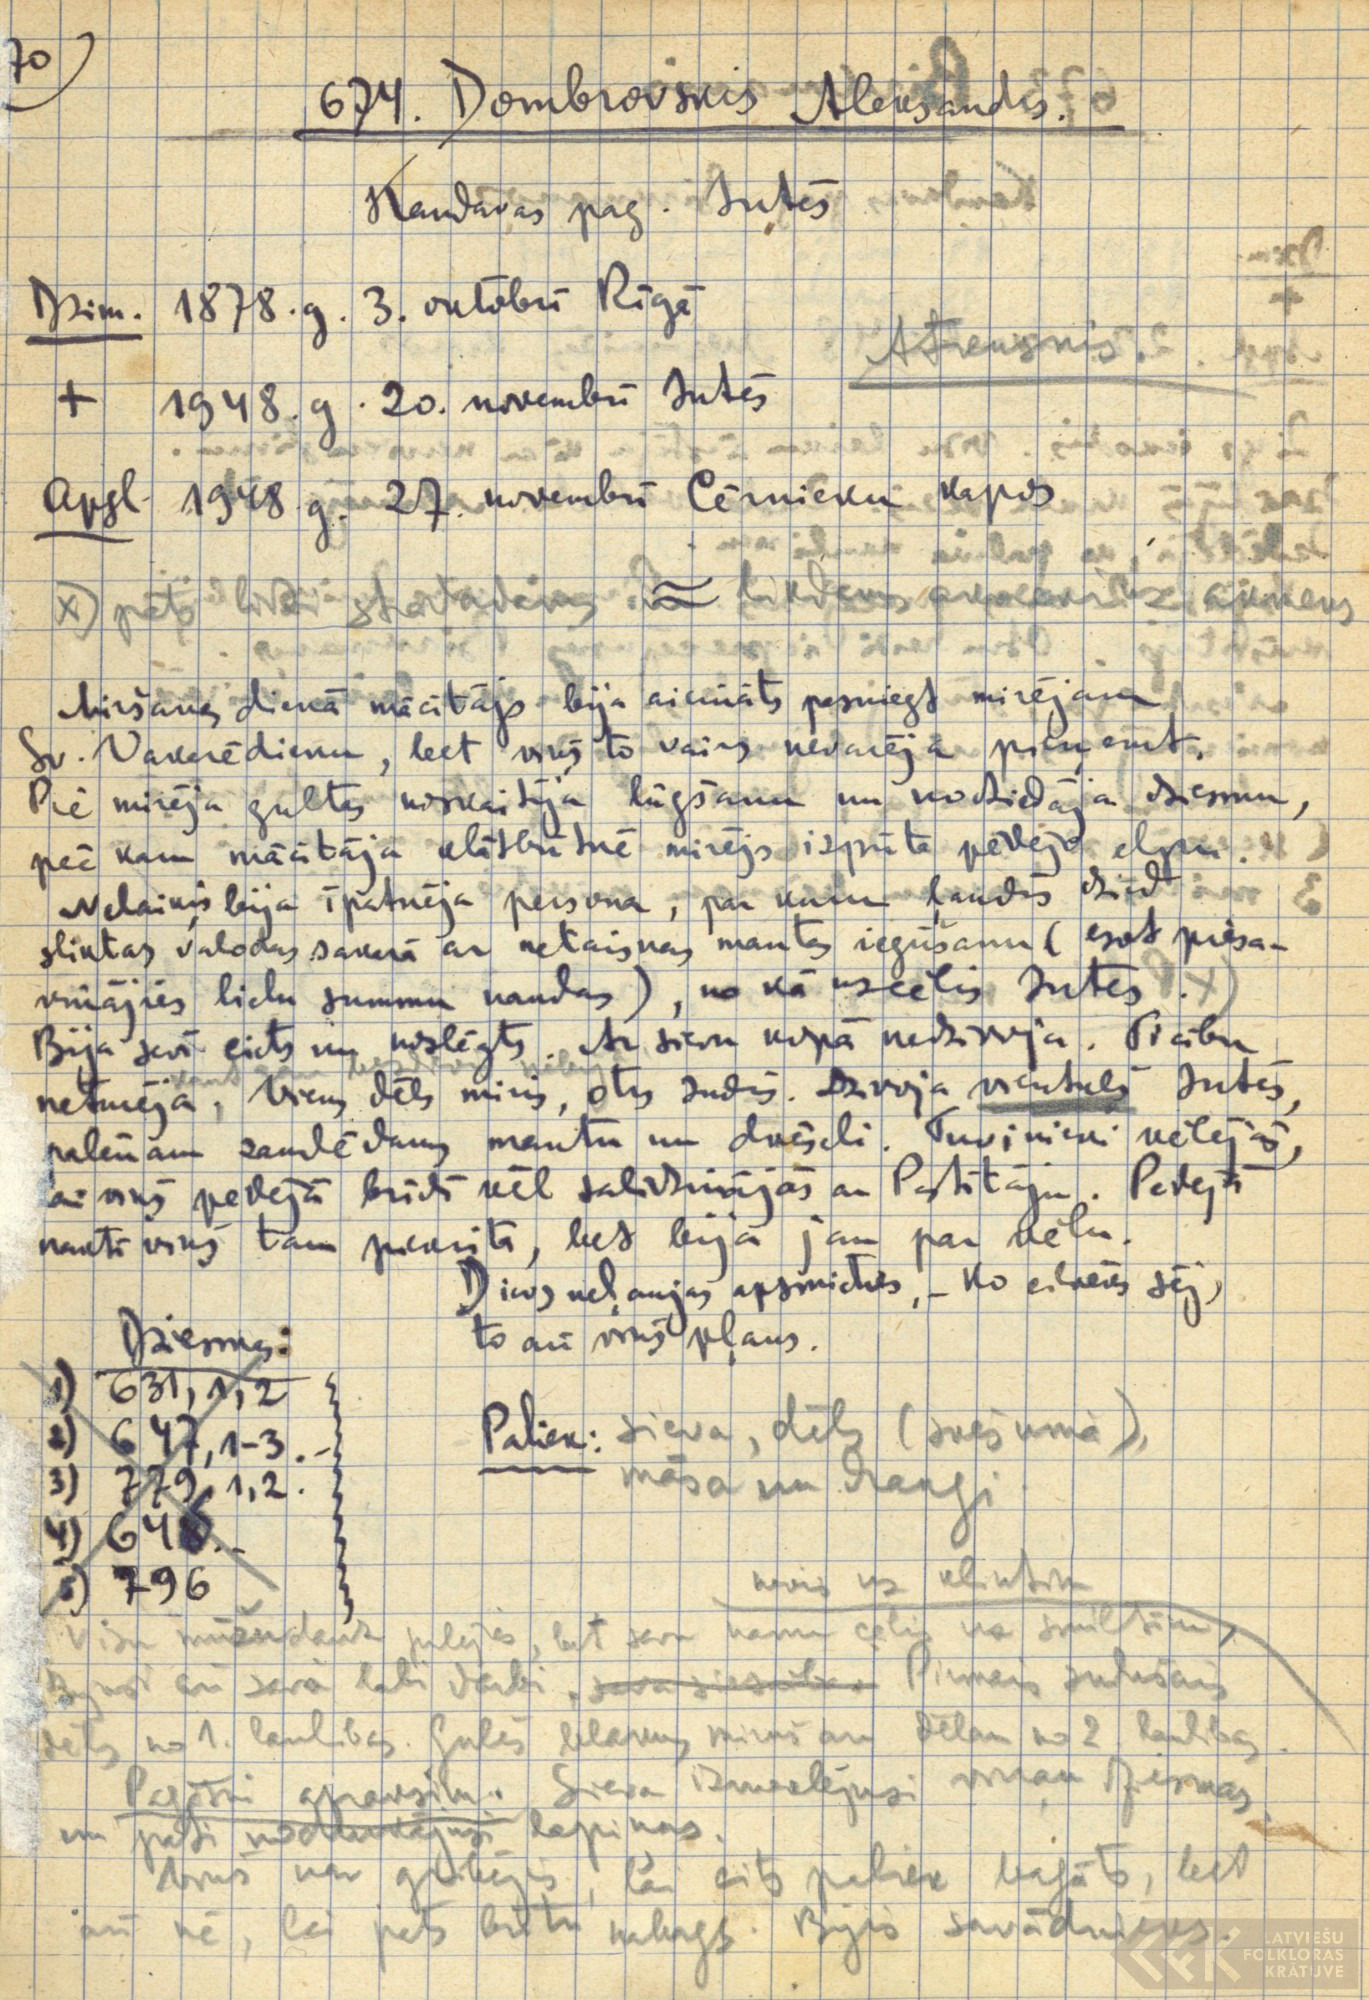 70)
674. Dombrovskis Aleksandrs.
Kandavas pag. Intēs
Dzim. 1878.g. 3. oktobrī Rīgā
Atraugnis.
+ 1948.g. 20. novembrī Intēs
Apgl. 1948.g. 27. novembrī Cērnieku kapos
x) pēts līdz
Miršanas dienā mācītājs bija aicināts pasniegt mirējam
Sv. Vakarēdienu, bet viņš to vairs nevarēja pieņemt.
Pie mirēja gultas noskaitīja lūgšanu un nodziedāja dziesmu,
pēc kam mācītāja klātbūtnē mirējs izpūta pēdējo elpu.
Nelaiķis bija īpatnēja persona, par kuru ļaudīs dzird
sliktas valodas sakarā ar netaisnas mantas iegūšanu (esot piesa-
vinājies lielu summu naudas), no kā uzcēlis Intes.
Bija sevī ciets un noslēgts. Ar sievu kopā nedzīvoja. Ticību
neturēja. Viens dēls miris, otrs zudis. Dzīvoja vientulis Intēs,
palēnam zaudēdams mantu un dvēseli. Tuvinieki vēlējās,
ai viņš pēdējā brīdī vēl salīdzinājās ar Pestītāju. Pēdējā
naktī viņš tam piekrita, bet bija jau par vēlu.
Dievs neļaujas apsmieties, - ko cilvēks sēj,
to arī viņš pļaus.
Dziesmas:
1) 631, 1,2
2) 647, 1-3.-
3) 779, 1,2.
4) 648..-
5) 796
Paliek: sieva, dēls (svešumā),
māsa un draugi.
nevis uz klintīm
Visu mūžu daudz pūlējies, bet savu namu cēlis uz smiltīm,
Bijuši arī savi labi darbi. Pirmais zudušais
dēls no 1. laulības. Gulēs blakus mirušam dēlam no 2. laulības.
Pagāni apraksim. Sieva izmeklējusi viņam dziesmas
un pati lapiņas.
Viņš nav gribējis, lai cits paliek bagāts, bet
arī nē, lai pats būtu nabags. Bijis savādnieks.
LATVIEŠU
FOLKLORAS
KRĀTUVE